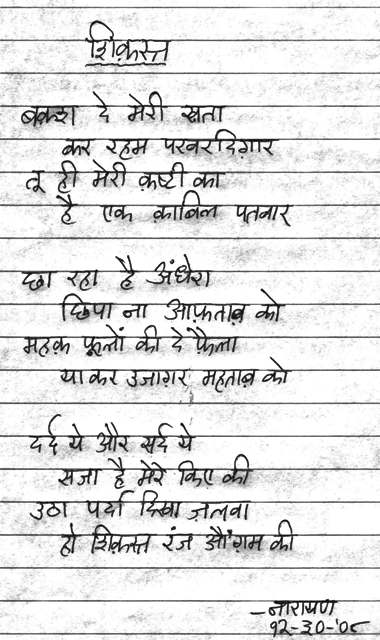 शिक़स्त
बक्श दे मेरी ख़ता
कर रहम परवरदिग़ार
तू ही मेरी क़ष्टी का
है एक क़ाबिल पतवार
छा रहा है अंधेरा
छिपा ना आफ़ताब़ को
महक़ फूलों की दे फ़ैला
या कर उजाग़र महताब़ को
दर्द ये और सर्द ये
सजा है मेरे किए की
उठा पर्दा दिखा ज़लवा
हो शिक़स्त रंज औ'ग़म की
–नारायण
१२-३०-'०८